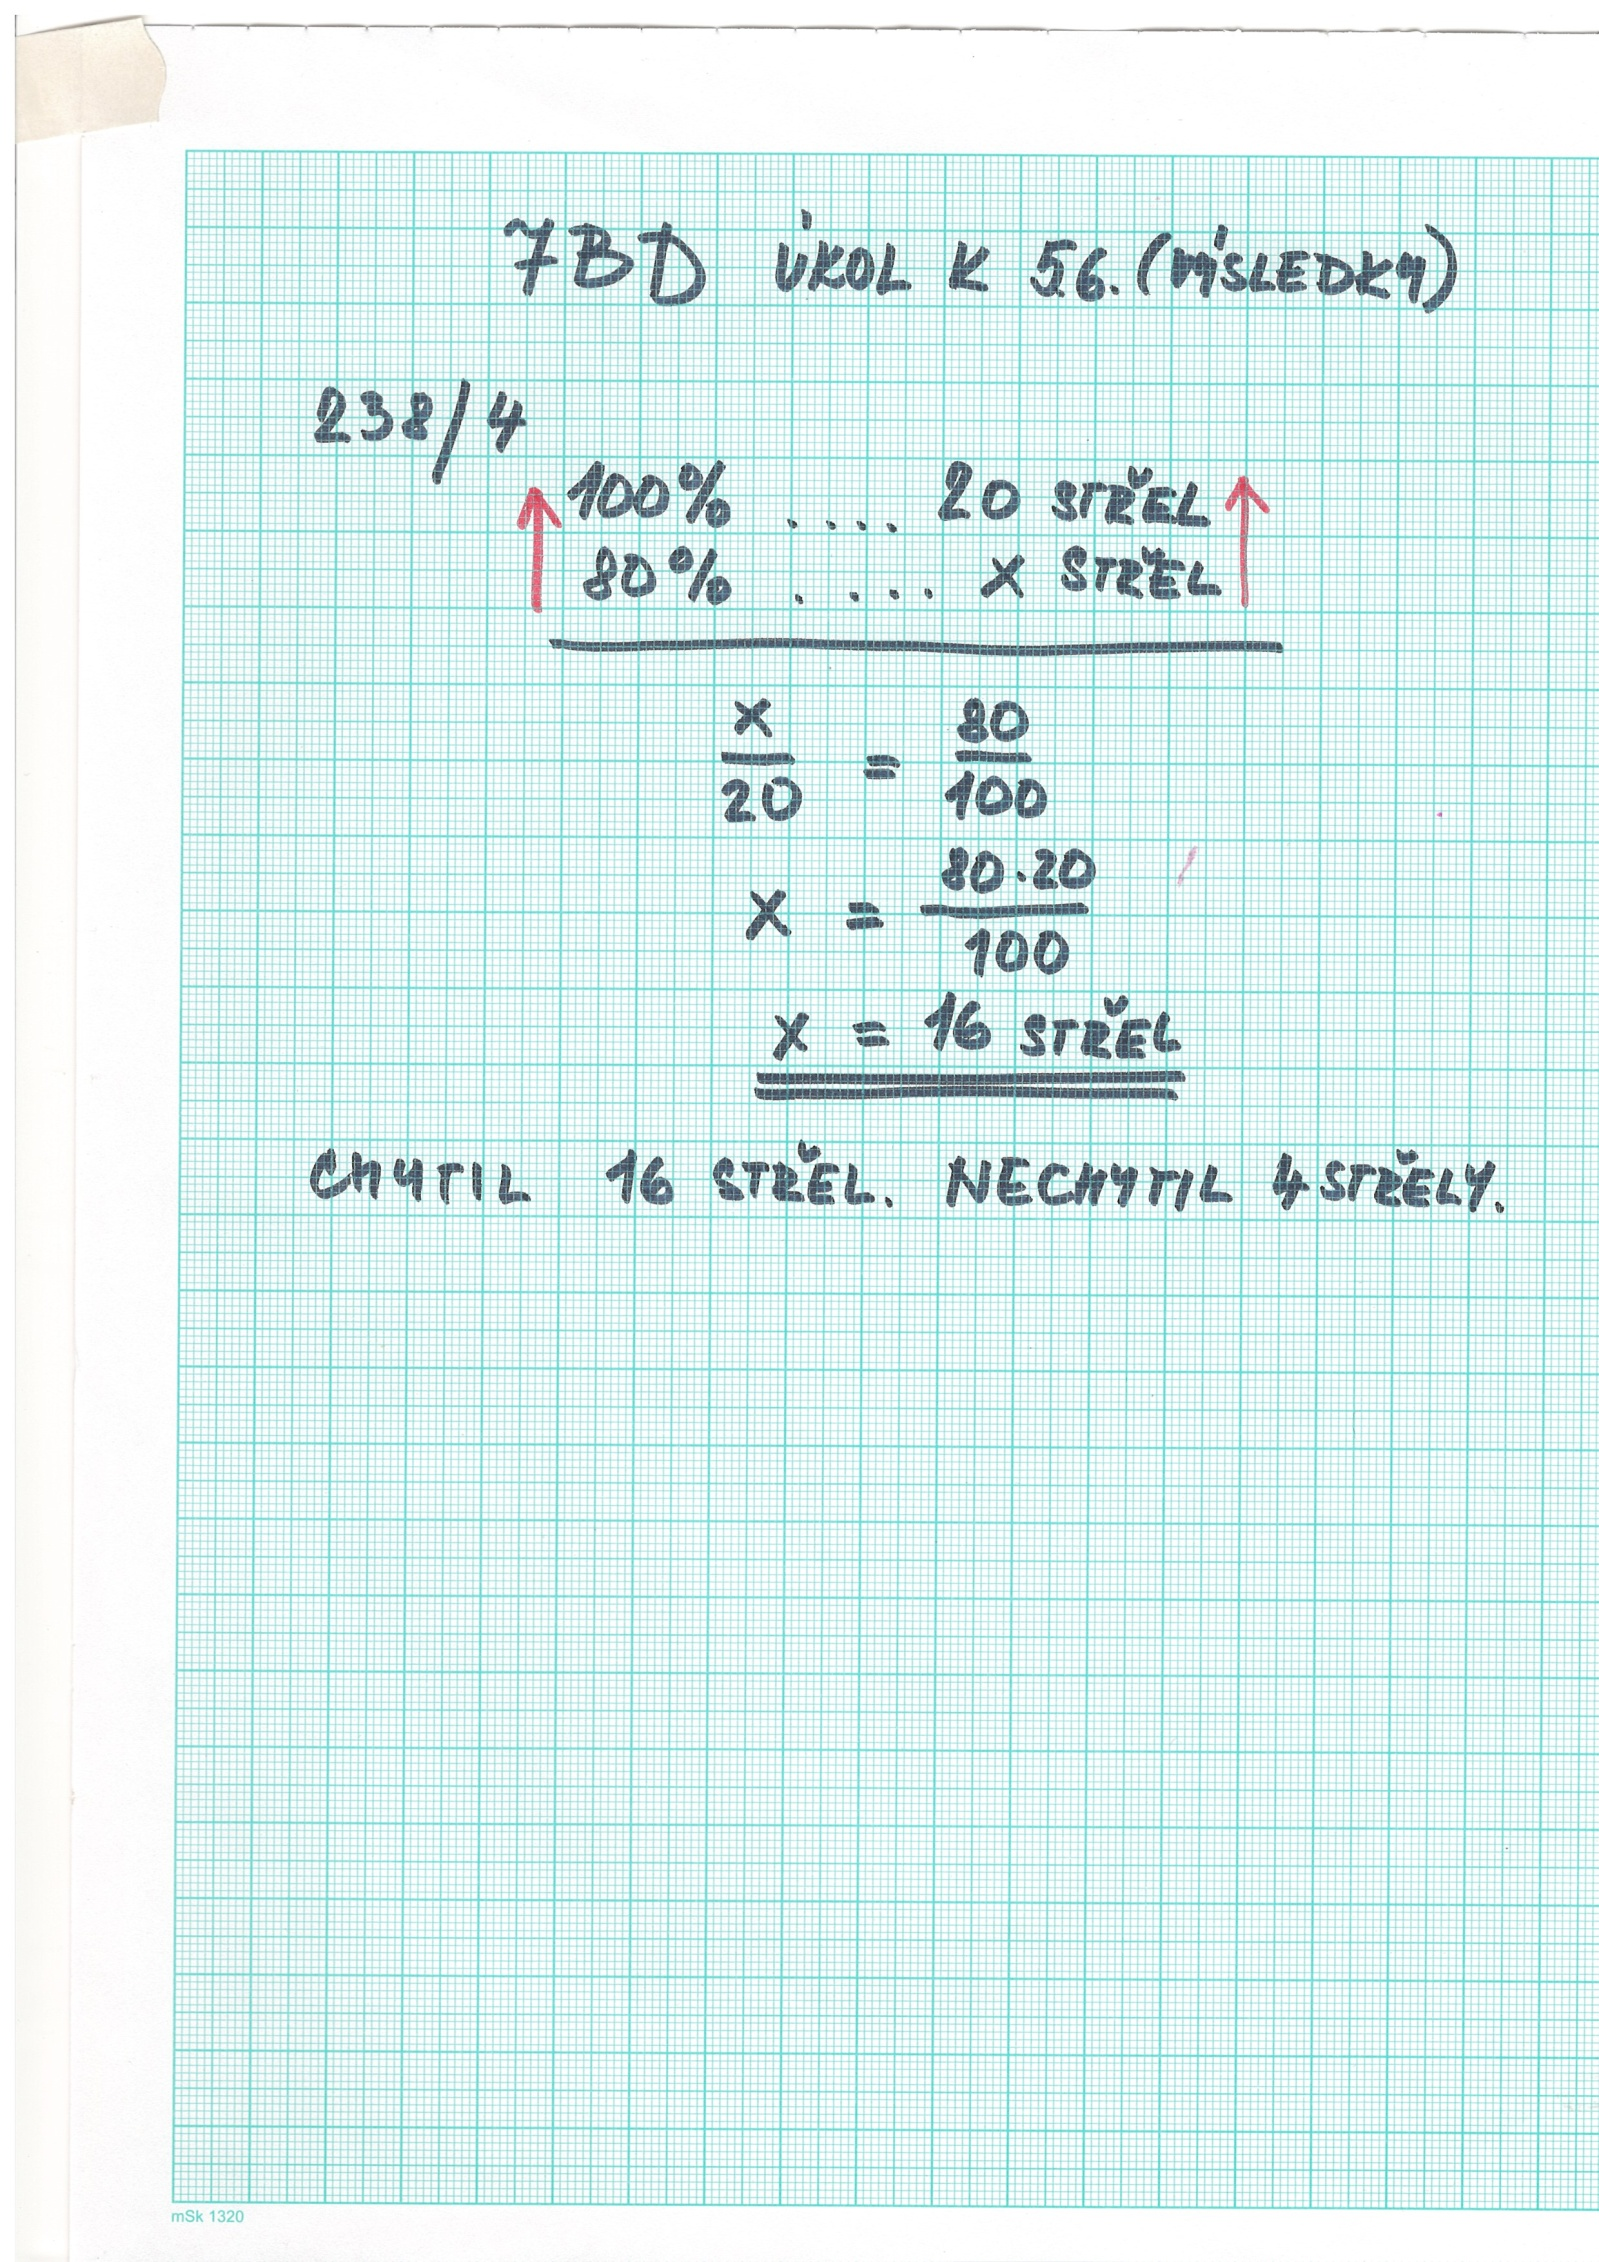 7BD ÚKOL K 5.6. (VÝSLEDKY)
238/4
100% .... 20 STŘEL
80% .... x STŘEL
x/20 = 80/100
x = 80·20/100
x = 16 STŘEL
CHYTIL 16 STŘEL. NECHYTIL 4 STŘELY.
mSk 1320